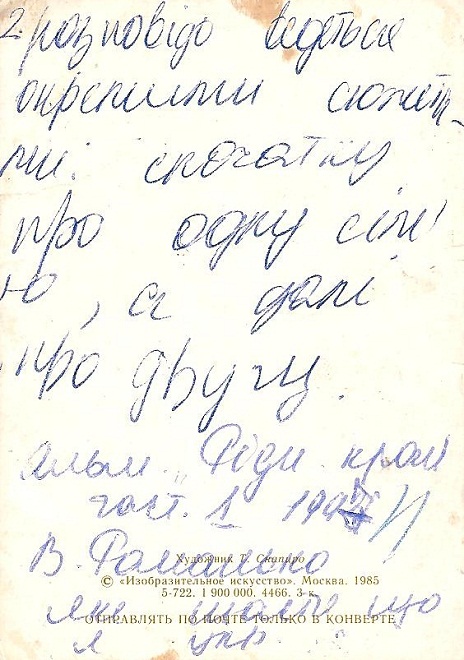 2 розповідь ведеться
окремими сюжета-
ми: спочатку
про одну сім'
ю, а далі
про другу.
альм. „Рідн. край
част. 1 199
В. Романько
Художник Т. Скапиро
© «Изобразительное искусство». Москва. 1985
5-722. 1 900 000. 4466. 3 к.
що
ОТПРАВЛЯТЬ ПО ПОЧТЕ ТОЛЬКО В КОНВЕРТЕ
я укр